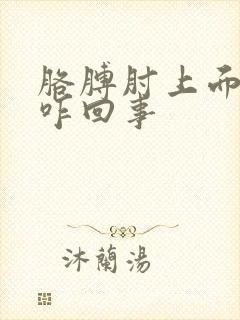 胳膊肘上而
咋回事
沐蘭湯